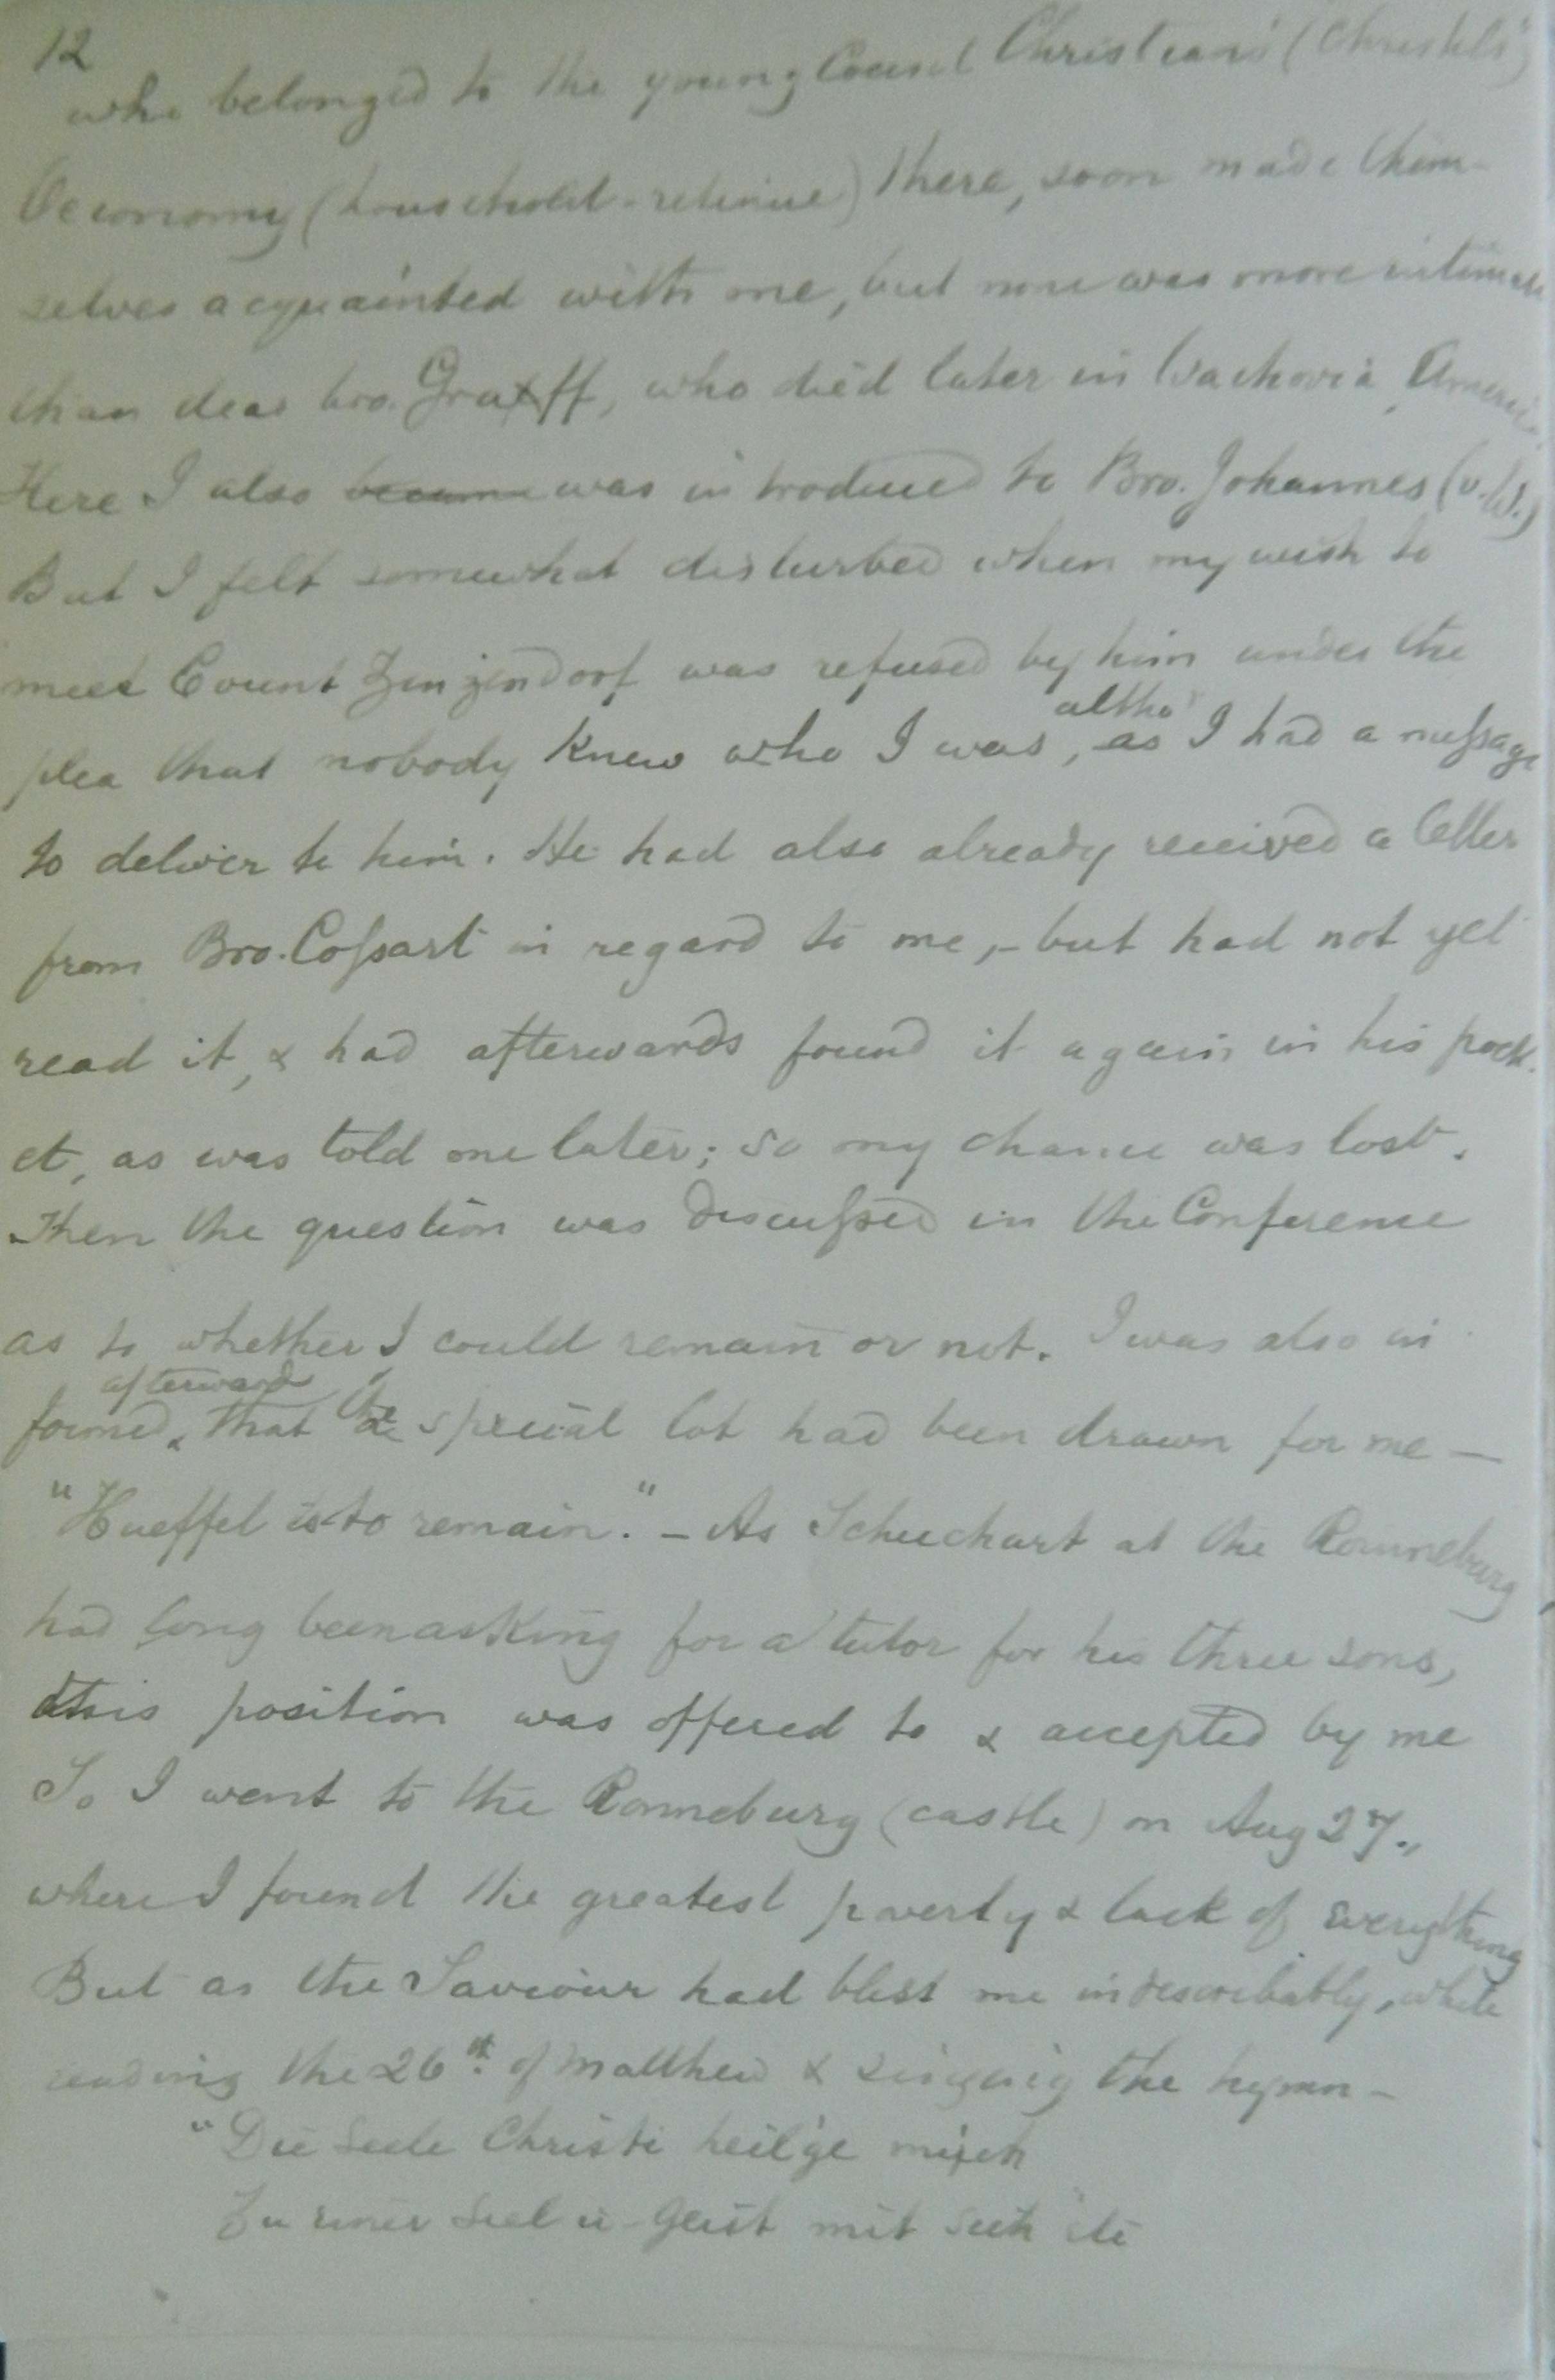 12
who belonged to the young Count Christian's (Christel's)
Oeconomy (household-retinue) there, soon made them-
selves acquainted with me, but none was more intimate
than dear bro. Graff, who died later in Wachovia, America.
Here I also became was introduced to Bro. Johannes (v. W.)
But I felt somewhat disturbed when my wish to
meet Count Zinzendorf was refused by him under the
plea that nobody knew who I was, as altho' I had a message
to deliver to him. He had also already received a letter
from Bro. Cossart in regard to me, - but had not yet
read it, & had afterwards found it again in his pock-
et, as was told me later; so my chance was lost.
Then the question was discussed in the Conference
as to whether I could remain or not. I was also in-
formed afterward that the special lot had been drawn for me —
"Hueffel is to remain." - As Schuchart at the Ronneburg,
had long been asking for a tutor for his three sons,
this position was offered to & accepted by me
So I went to the Ronneburg (castle) on Aug 27.,
where I found the greatest poverty & lack of everything
But as the Saviour had blest me indescribably, while
reading the 26th of Matthew & singing the hymn -
"Die Seele Christi heil'ge mich
Zu einer Seel u. Geist mit sich" etc